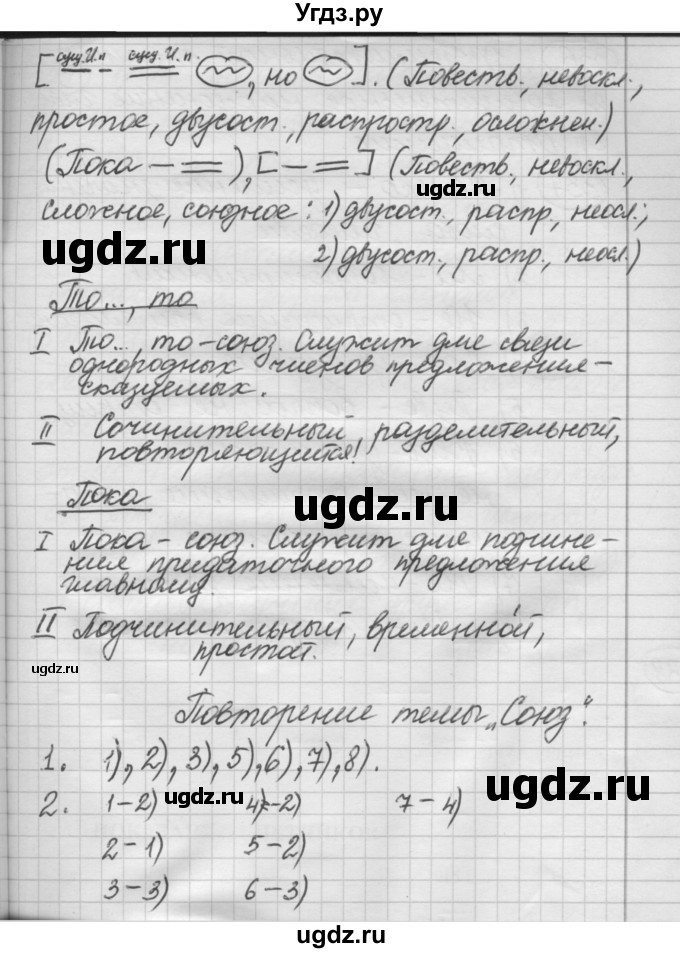 Угдз.ру
[сущ. И.п. — сущ. И.п. , но ]. (Повеств., невоскл.,
простое, двусост., распростр., осложнен.)
(Пока — =), [— =] (Повеств., невоскл.,
ugdz.ru
сложное, союзное: 1) двусост., распр., неосл.;
ugdz.ru
ugdz.ru
2) двусост., распр., неосл.)
То..., то
I То..., то – союз. Служит для связи
однородных членов предложения –
сказуемых.
II Сочинительный, разделительный,
повторяющийся!
Пока
ugdz.ru
I Пока – союз. Служит для подчине-
ния придаточного предложения
главному.
II Подчинительный, временной,
простой.
ugdz.ru
Повторение темы „Союз".
1. 1), 2), 3), 5), 6), 7), 8).
ugdz.ru
2. 1–2) ugdz.ru 4–2) 7–4)
2–1) 5–2)
3–3) 6–3)
ugdz.ru